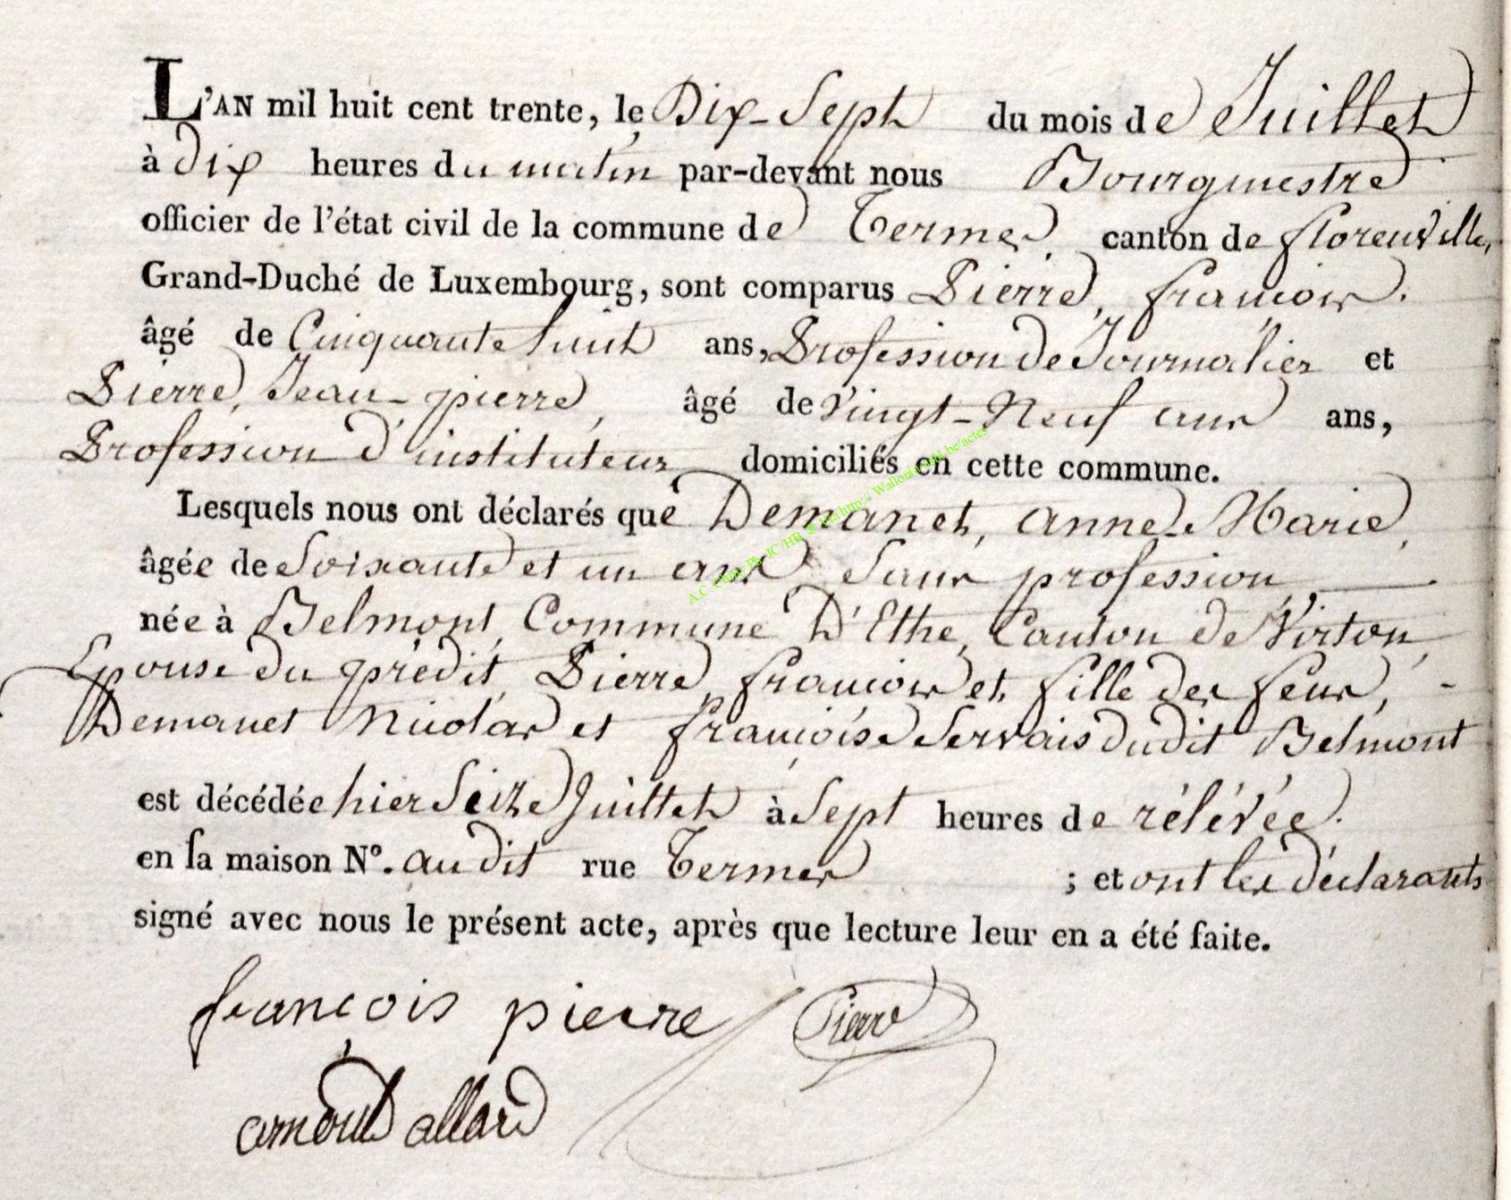 L'AN mil huit cent trente, le Dix-Sept du mois de Juillet
à dix heures du matin par-devant nous Bourgmestre
officier de l'état civil de la commune de Termes, canton de florenville,
Grand-Duché de Luxembourg, sont comparus Pierre, françois.
âgé de Cinquante huit ans, Profession de Journalier et
Pierre, Jean-pierre, âgé de Vingt-Neuf ans ans,
Profession d'instituteur domiciliés en cette commune.
Lesquels nous ont déclarés que Demanet, anne-Marie,
âgée de Soixante et un ans Sans profession,
née à Belmont, Commune D'Ethe, Canton de Virton,
Epouse du prédit, Pierre, françois et fille des feus,
Demanet Nicolas et françoise Servais dudit Belmont
est décédée hier Seize Juillet à Sept heures de rélévée.
en sa maison N°. audit rue Termes ; et ont les déclarants
signé avec nous le présent acte, après que lecture leur en a été faite.
françois pierre Pierre
arnould allard